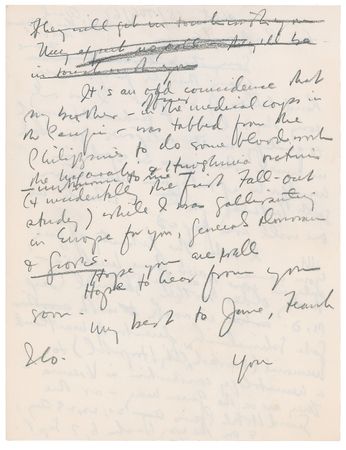 They will get in touch with you
They expect
is touch with you
It's an odd coincidence that
my brother - in the medical corps in
the Pacific - was tabbed from the
Philippines to do some blood work
the Nagasaki & Hiroshima victims
- unknown to me
(& incidentally the first fall-out
study) while I was gallivanting
in Europe for you, General Donovan
& Groves.
Hope you are well
Hope to hear from you
soon.
my best to Jane,
you